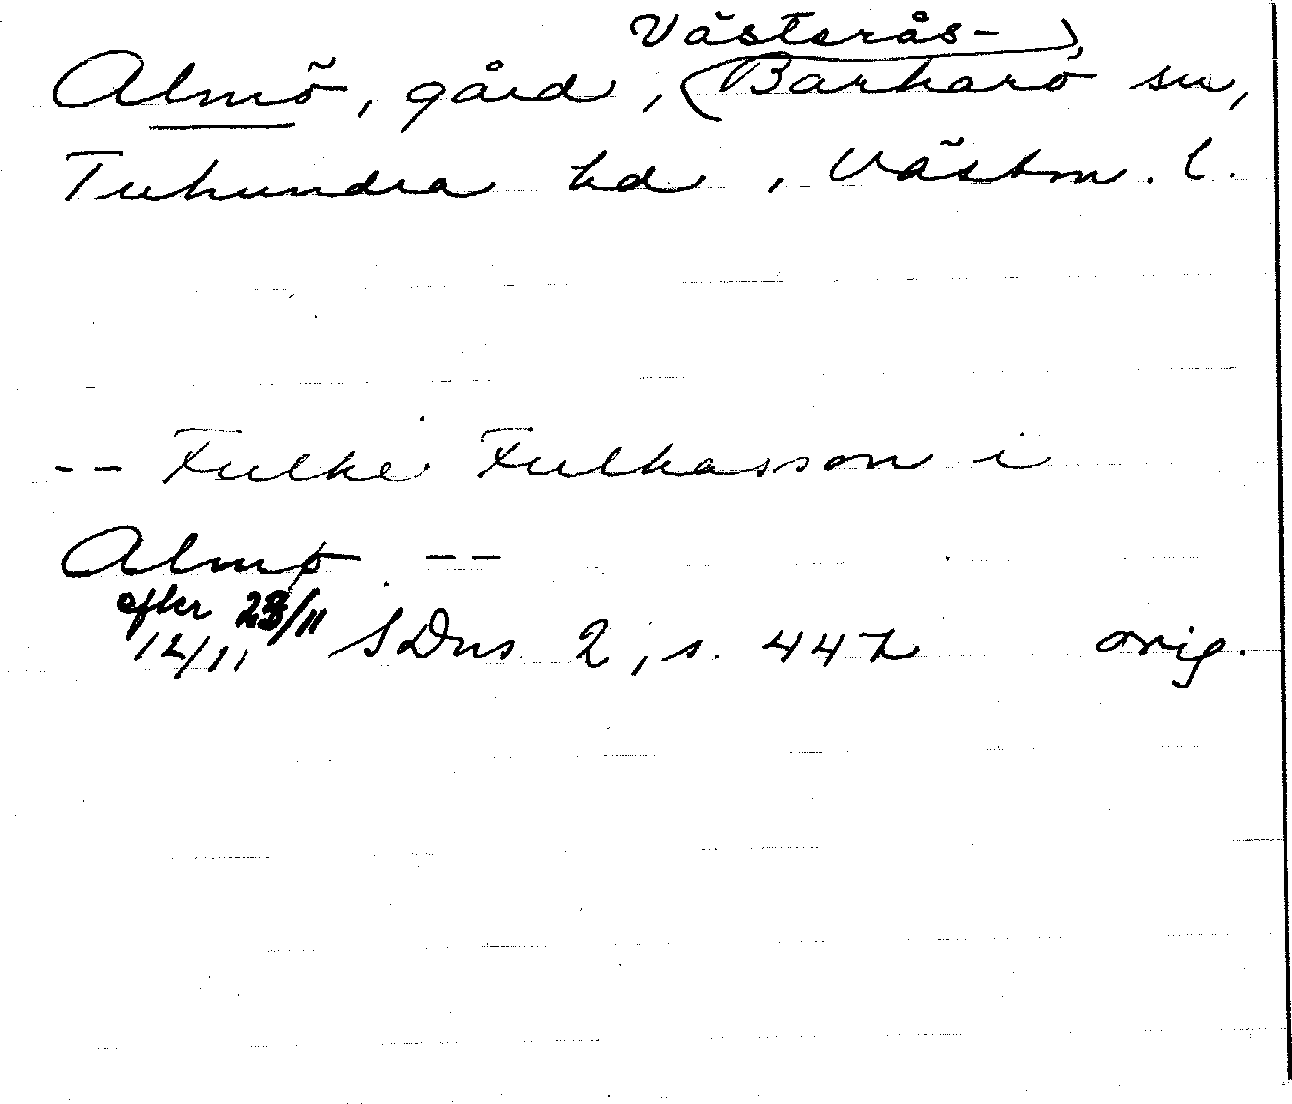 Västerås-
Almö, gård, Barkarö sn,
Tuhundra hd, Västm. l.
-- Fulke Fulkasson i
Almø --
efter 23/11
1411 SDns 2, s. 442 orig.